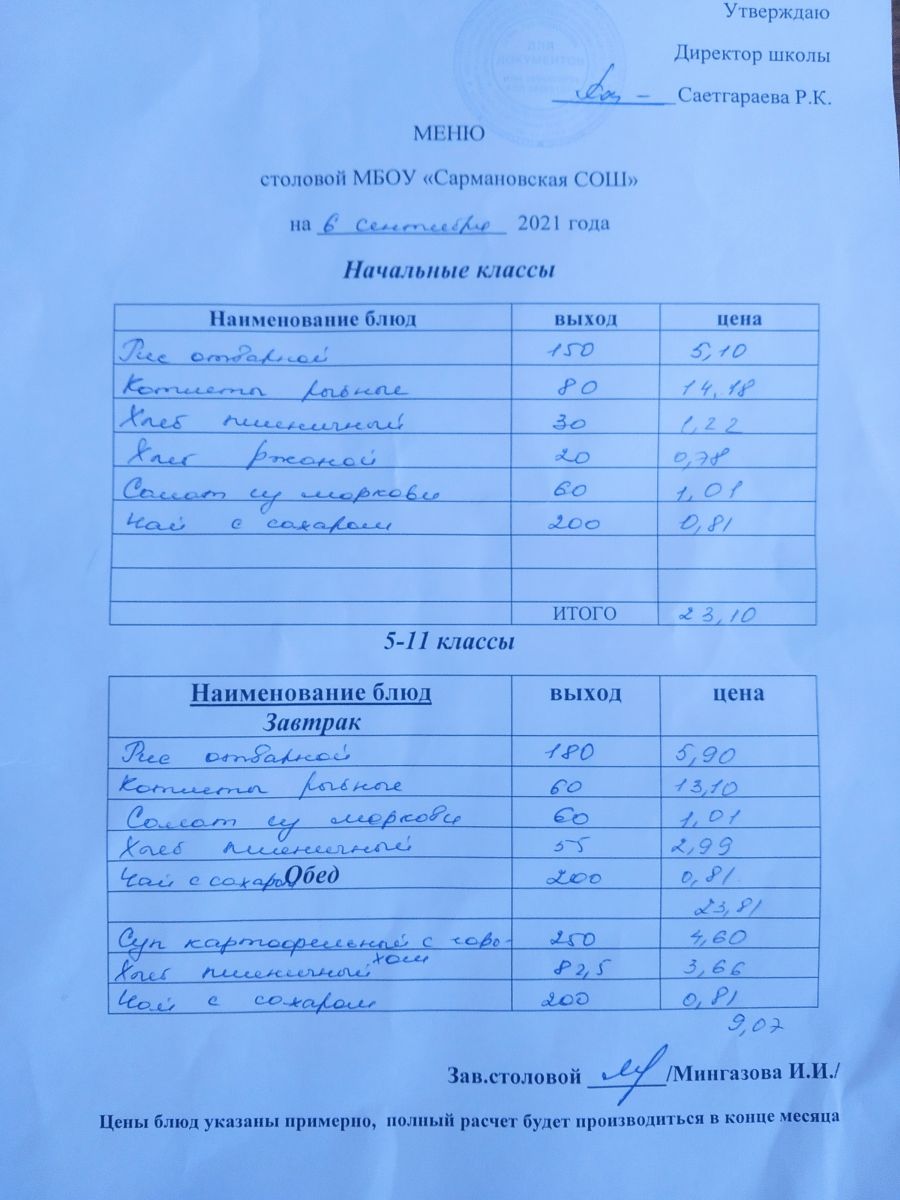 Утверждаю
Директор школы
ДЛЯ
ДОКУМЕНТОВ
Саетгараева Р.К.
МЕНЮ
столовой МБОУ «Сармановская СОШ»
на 6 сентября 2021 года
Начальные классы
Наименование блюд выход цена
Рис отварной 150 5,10
Котлеты рыбные 80 14,18
Хлеб пшеничный 30 1,22
Хлеб ржаной 20 0,78
Салат из моркови 60 1,01
Чай с сахаром 200 0,81
ИТОГО 23,10
5-11 классы
Наименование блюд выход цена
Завтрак
Рис отварной 180 5,90
Котлеты рыбные 60 13,10
Салат из моркови 60 1,01
Хлеб пшеничный 55 2,99
Чай с сахаром Обед 200 0,81
23,81
Суп картофельный с горо- 250 4,60
хом
Хлеб пшеничный 82,5 3,66
Чай с сахаром 200 0,81
9,07
Зав.столовой /Мингазова И.И./
Цены блюд указаны примерно, полный расчет будет производиться в конце месяца